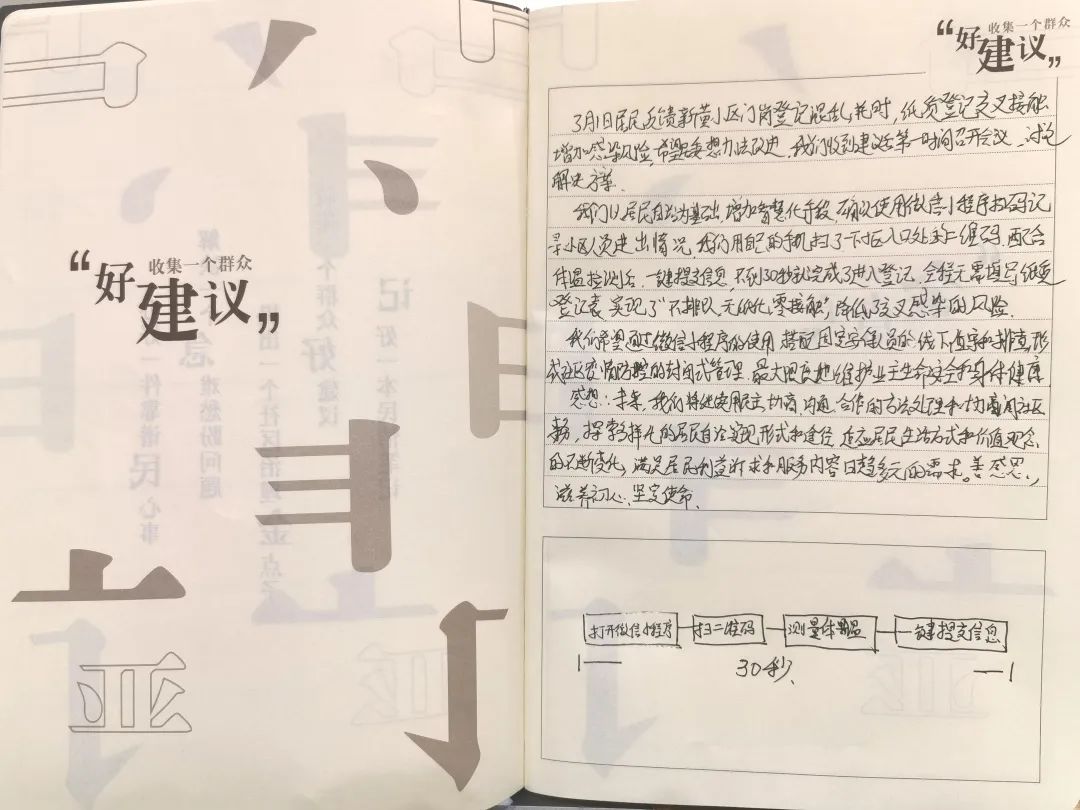 “好
收集一个群众
建议”
“好
收集一个群众
建议”
3月1日居民反馈新黄小区门岗登记混乱,耗时,纸质登记交叉接触
增加感染风险,希望居委想办法改进,我们收到建议后第一时间召开会议,讨论
解决方案.
我们以居民自治为基础,增加智慧化手段,确议使用微信小程序扫码记
录小区人员进出情况,我们用自己的手机扫了一下小区入口处的二维码,配合
体温检测后,一键提交信息,不到30秒就完成了进入登记,全程无需填写纸质
登记表,实现了“不排队、无纸化、零接触”,降低了交叉感染的风险.
我们希望通过微信小程序的使用,搭配固定守保员的线下值守和排查,形
式社区疫情防控的封闭式管理,最大限度地维护业主生命安全和身体健康
感想:未来,我们将继续用民主、协商、沟通、合作的方法处理和协商社区
务,探索多样化的居民自治实现形式和途径,适应居民生活方式和价值观念
的不断变化,满足居民利益诉求和服务内容日趋多元的需求。善感恩,
滋养初心、坚定使命.
打开微信小程序 扫二维码 测量体温 一键提交信息
30秒.